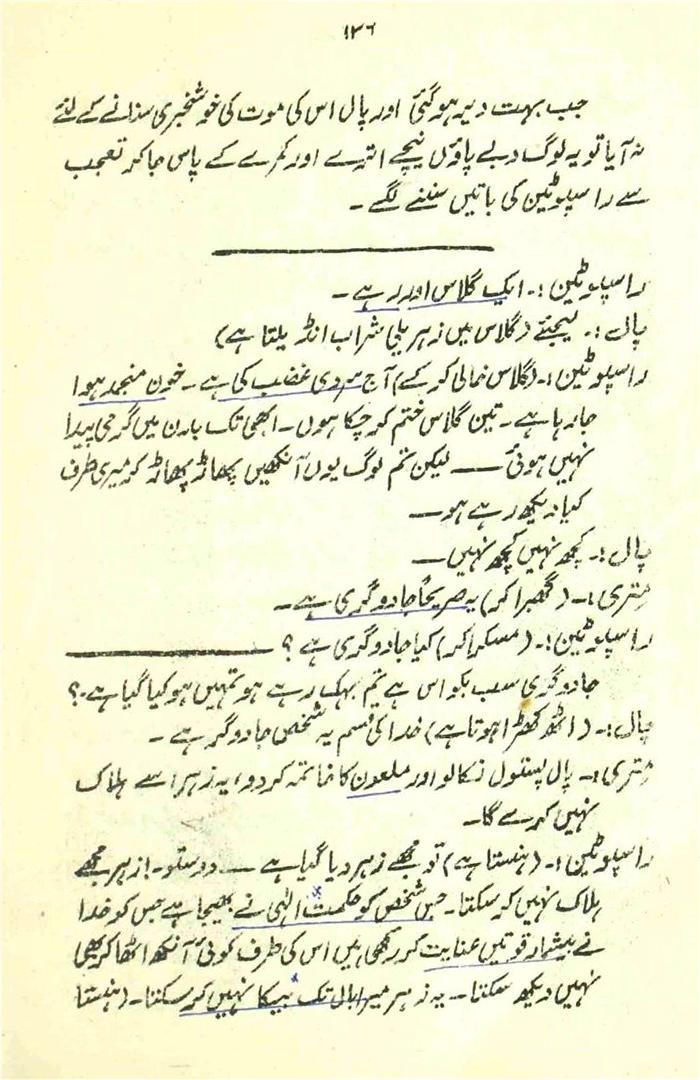 ۱۳۶
جب بہت دیر ہو گئی اور پال اس کی موت کی خوشخبری سنانے کے لئے
نہ آیا تو یہ لوگ دبے پاؤں نیچے اترے اور کمرے کے پاس جا کر تعجب
سے راسپوٹین کی باتیں سننے لگے۔
راسپوٹین :۔ ایک گلاس اور رہے۔
پال :۔ لیجئے (گلاس میں زہریلی شراب انڈیلتا ہے)
راسپوٹین :۔ (گلاس خالی کر کے) آج سردی غضب کی ہے۔ خون منجمد ہوا
جا رہا ہے۔ تین گلاس ختم کر چکا ہوں۔ ابھی تک بدن میں گرمی پیدا
نہیں ہوئی — لیکن تم لوگ یوں آنکھیں پھاڑ پھاڑ کر میری طرف
کیا دیکھ رہے ہو—
پال :۔ کچھ نہیں کچھ نہیں—
متری :۔ (گھبرا کر) یہ صریحاً جادوگری ہے۔
راسپوٹین :۔ (مسکرا کر) کیا جادوگری ہے ؟ ———
جادوگری سب بکواس ہے تم بہک رہے ہو تمہیں ہو کیا گیا ہے۔؟
پال :۔ (اٹھ کھڑا ہوتا ہے) خدا کی قسم یہ شخص جادوگر ہے۔
متری :۔ پال پستول نکالو اور ملعون کا خاتمہ کر دو، یہ زہر اسے ہلاک
نہیں کرے گا۔
راسپوٹین :۔ (ہنستا ہے) تو مجھے زہر دیا گیا ہے — دوستو۔! زہر مجھے
ہلاک نہیں کر سکتا۔ جس شخص کو حکمت الٰہی نے بھیجا ہے جس کو خدا
نے بیشمار قوتیں عنایت کر رکھی ہیں اس کی طرف کوئی آنکھ اٹھا کر بھی
نہیں دیکھ سکتا — یہ زہر میرا بال تک بیکا نہیں کر سکتا۔ (ہنستا